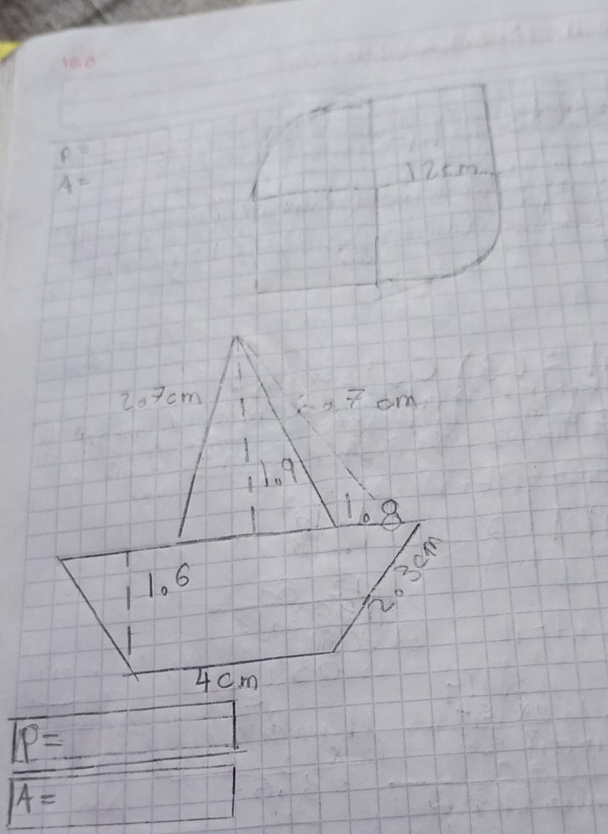 P=
A=
12cm
2.7cm
.7 cm
1.9
1.8
1.6
2.3cm
4cm
P=
A=